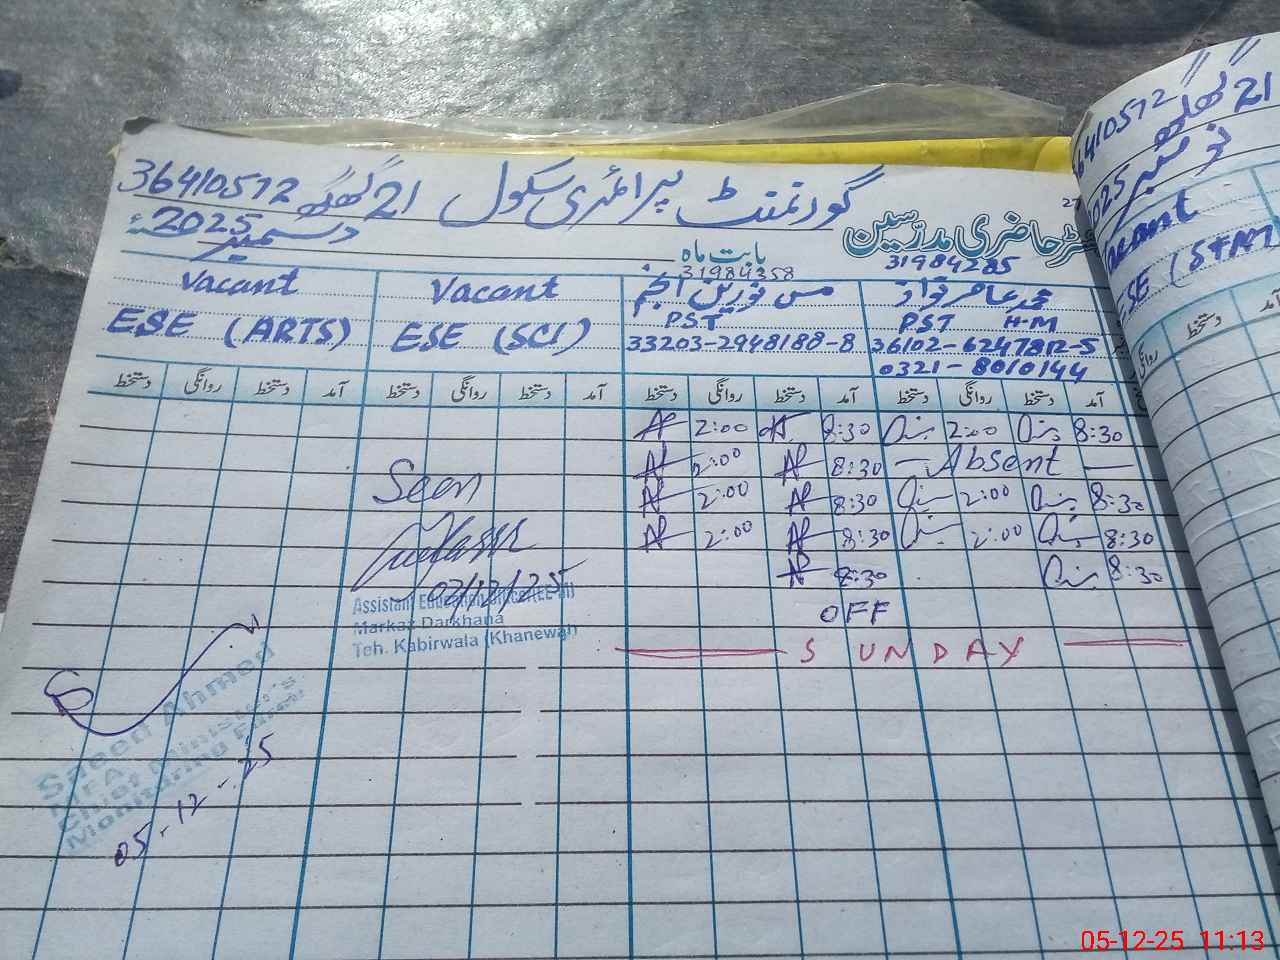 گورنمنٹ پرائمری سکول 21 گھگھ 36410572
رجسٹر حاضری مدرسین
بابت ماہ دسمبر 2025ء
31984285
31984358
محمد عامر نواز
PST H-M
36102-6247812-5
0321-8010144
مس نورین انجم
PST
33203-2948188-8
Vacant
ESE (SCI)
Vacant
ESE (ARTS)
آمد دستخط روانگی دستخط آمد دستخط روانگی دستخط آمد دستخط روانگی دستخط آمد دستخط روانگی دستخط
8:30 2:00 8:30 2:00
Absent 8:30 2:00
8:30 2:00 8:30 2:00
8:30 2:00 8:30 2:00
8:30 8:30
OFF
SUNDAY
Seen
03/12/25
Assistant Education Officer (EE-M)
Markaz Darkhana
Teh. Kabirwala (Khanewal)
Saeed Ahmed
Chief Minister's
Monitoring Force
05-12-25
36410572 21 گھگھ
نومبر 2025
Vacant
ESE (STEM
دستخط
روانگی
05-12-25 11:13